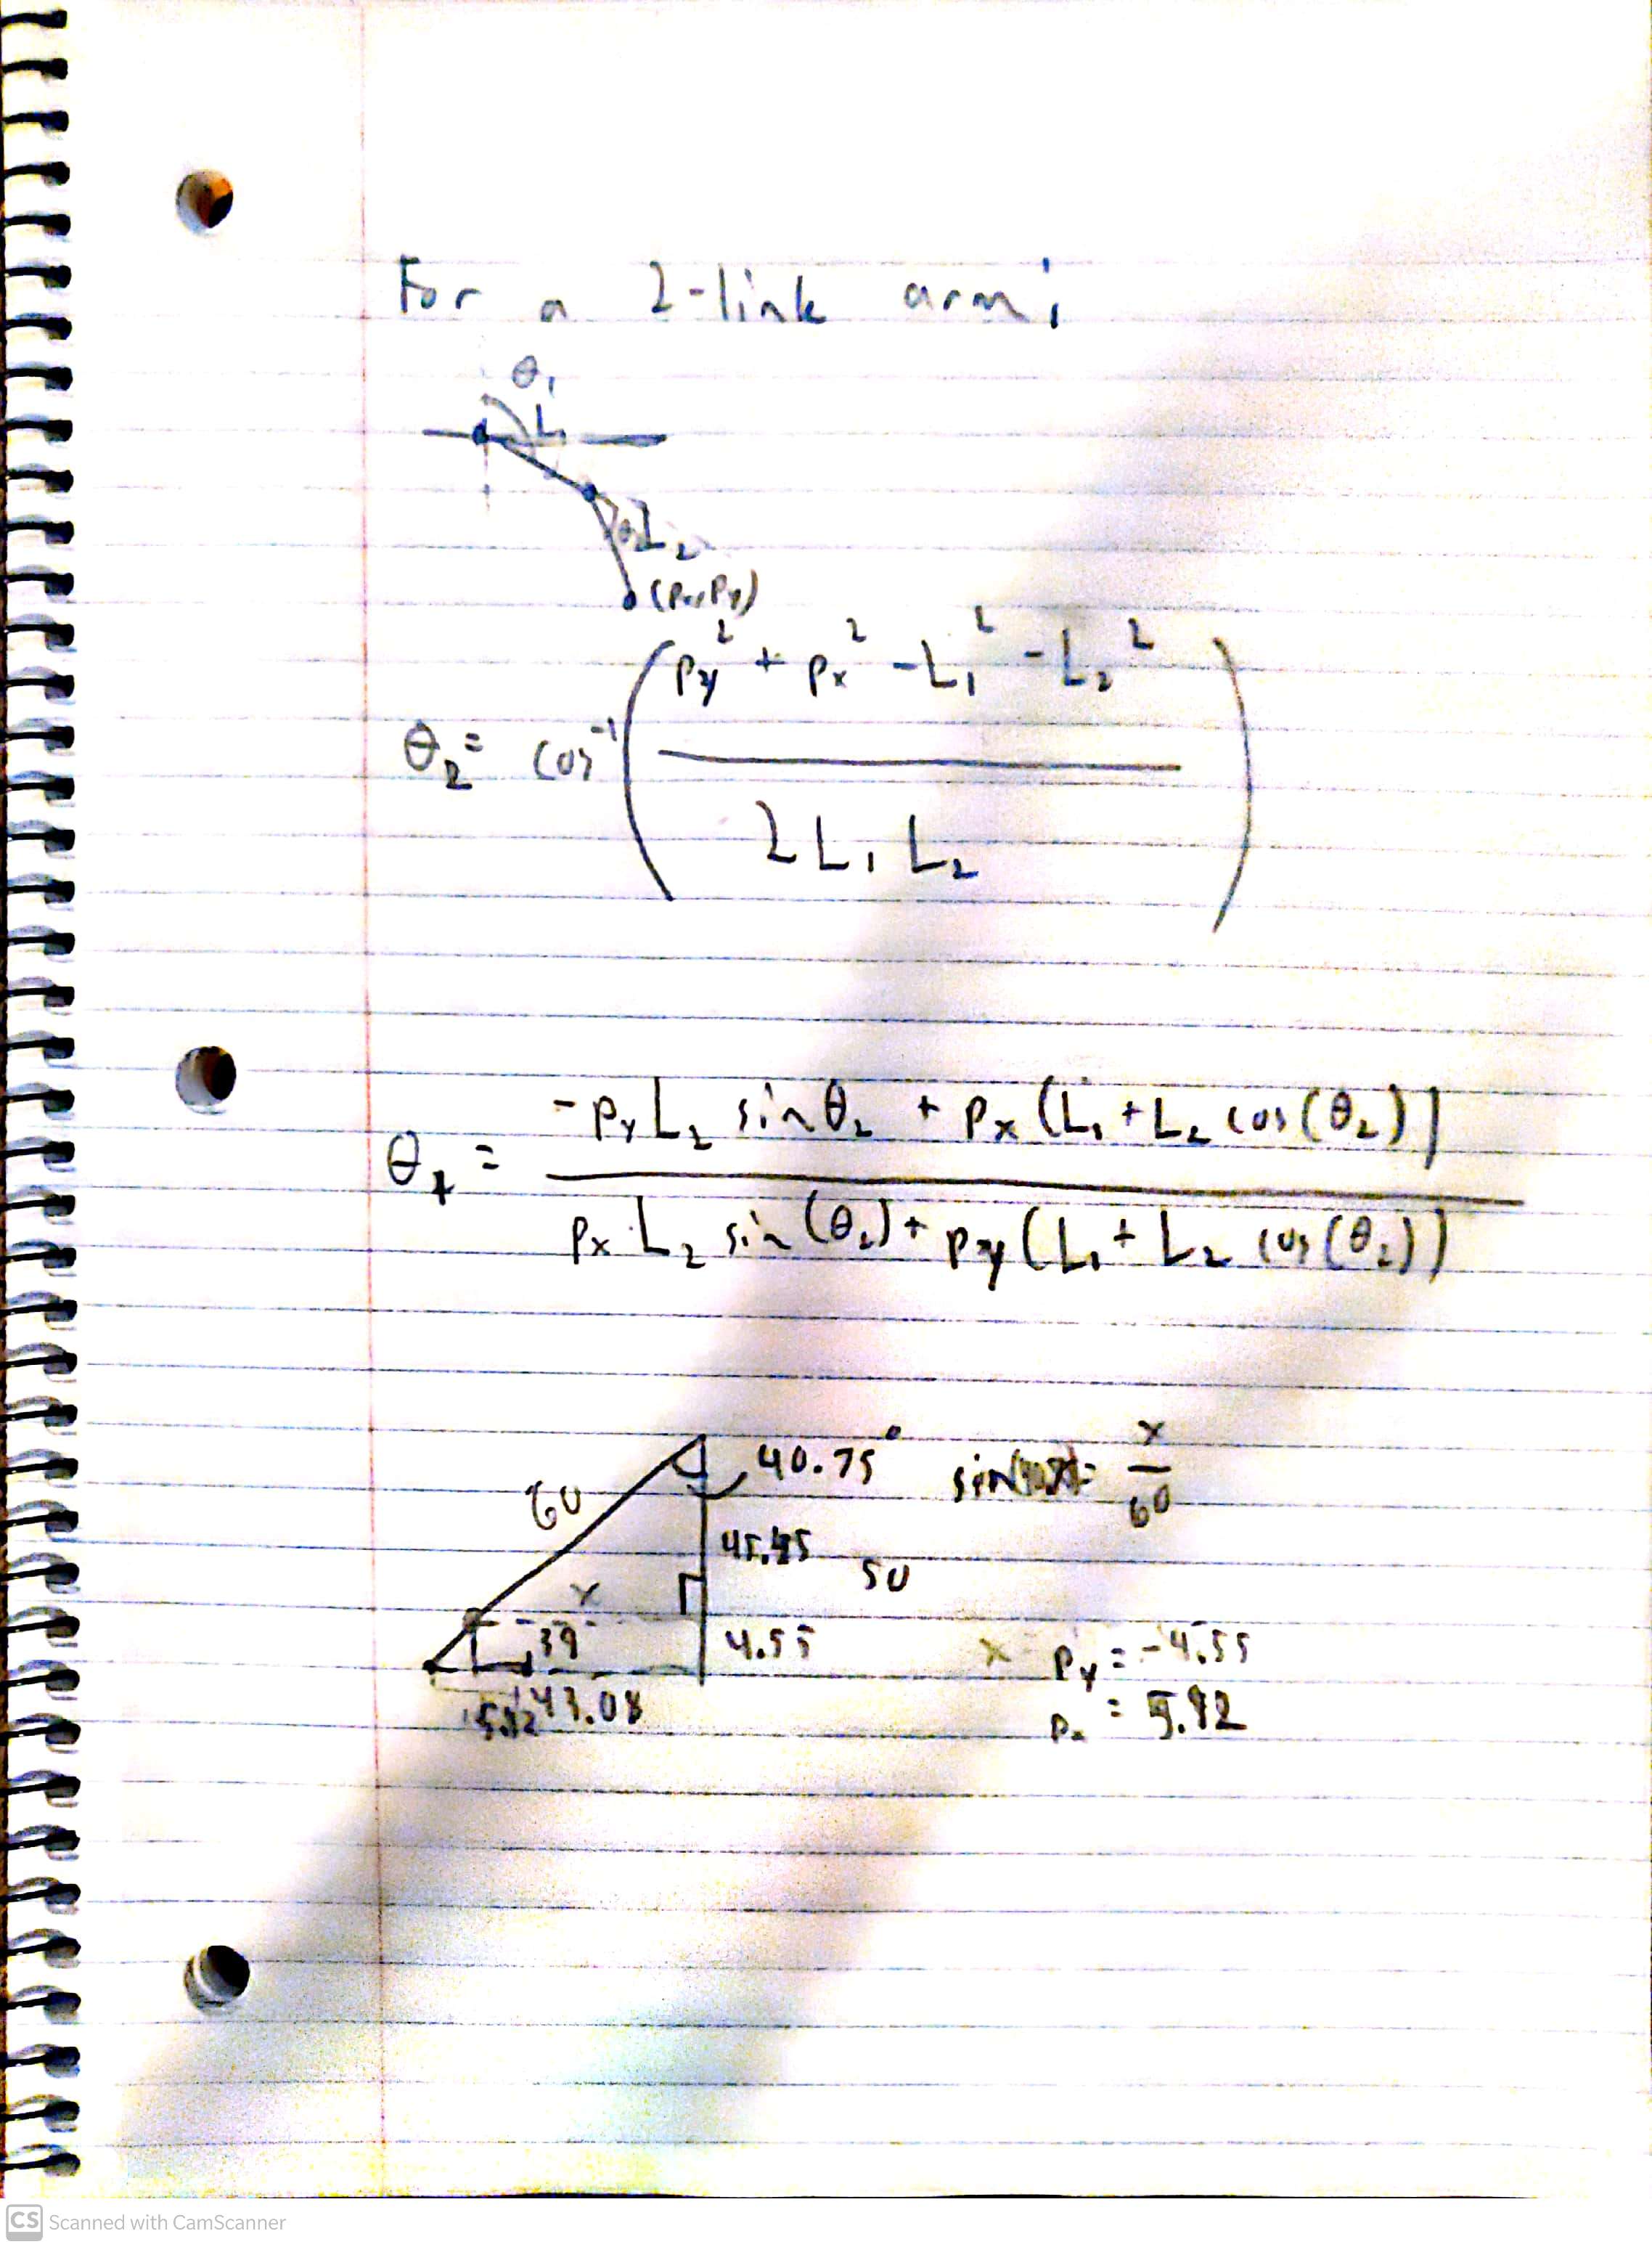 For a 2-link arm;
θ₁
L₁
θ₂ L₂
(Px, Py)
θ₂ = cos⁻¹ ( (Py² + Px² - L₁² - L₂²) / (2 L₁ L₂) )
θ₁ = (-Py L₂ sin θ₂ + Px (L₁ + L₂ cos(θ₂))) / (Px L₂ sin(θ₂) + Py (L₁ + L₂ cos(θ₂)))
40.75° sin(40.75) = x / 60
60
45.45
50
x
39
4.55
x Py = -4.55
43.08
Px = 5.92
CS Scanned with CamScanner